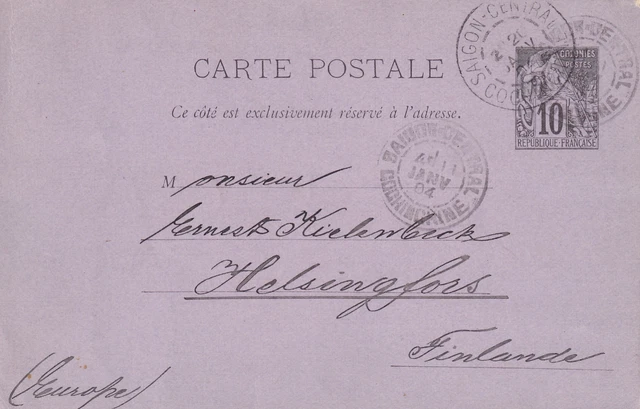 SAIGON-CENTRAL
COLONIES
POSTES
10
RÉPUBLIQUE FRANÇAISE
CARTE POSTALE
Ce côté est exclusivement réservé à l'adresse.
SAIGON-CENTRAL
JANV
94
COCHINCHINE
Monsieur
Ernest Kielenbeck
Helsingfors
Finlande
(Europe)